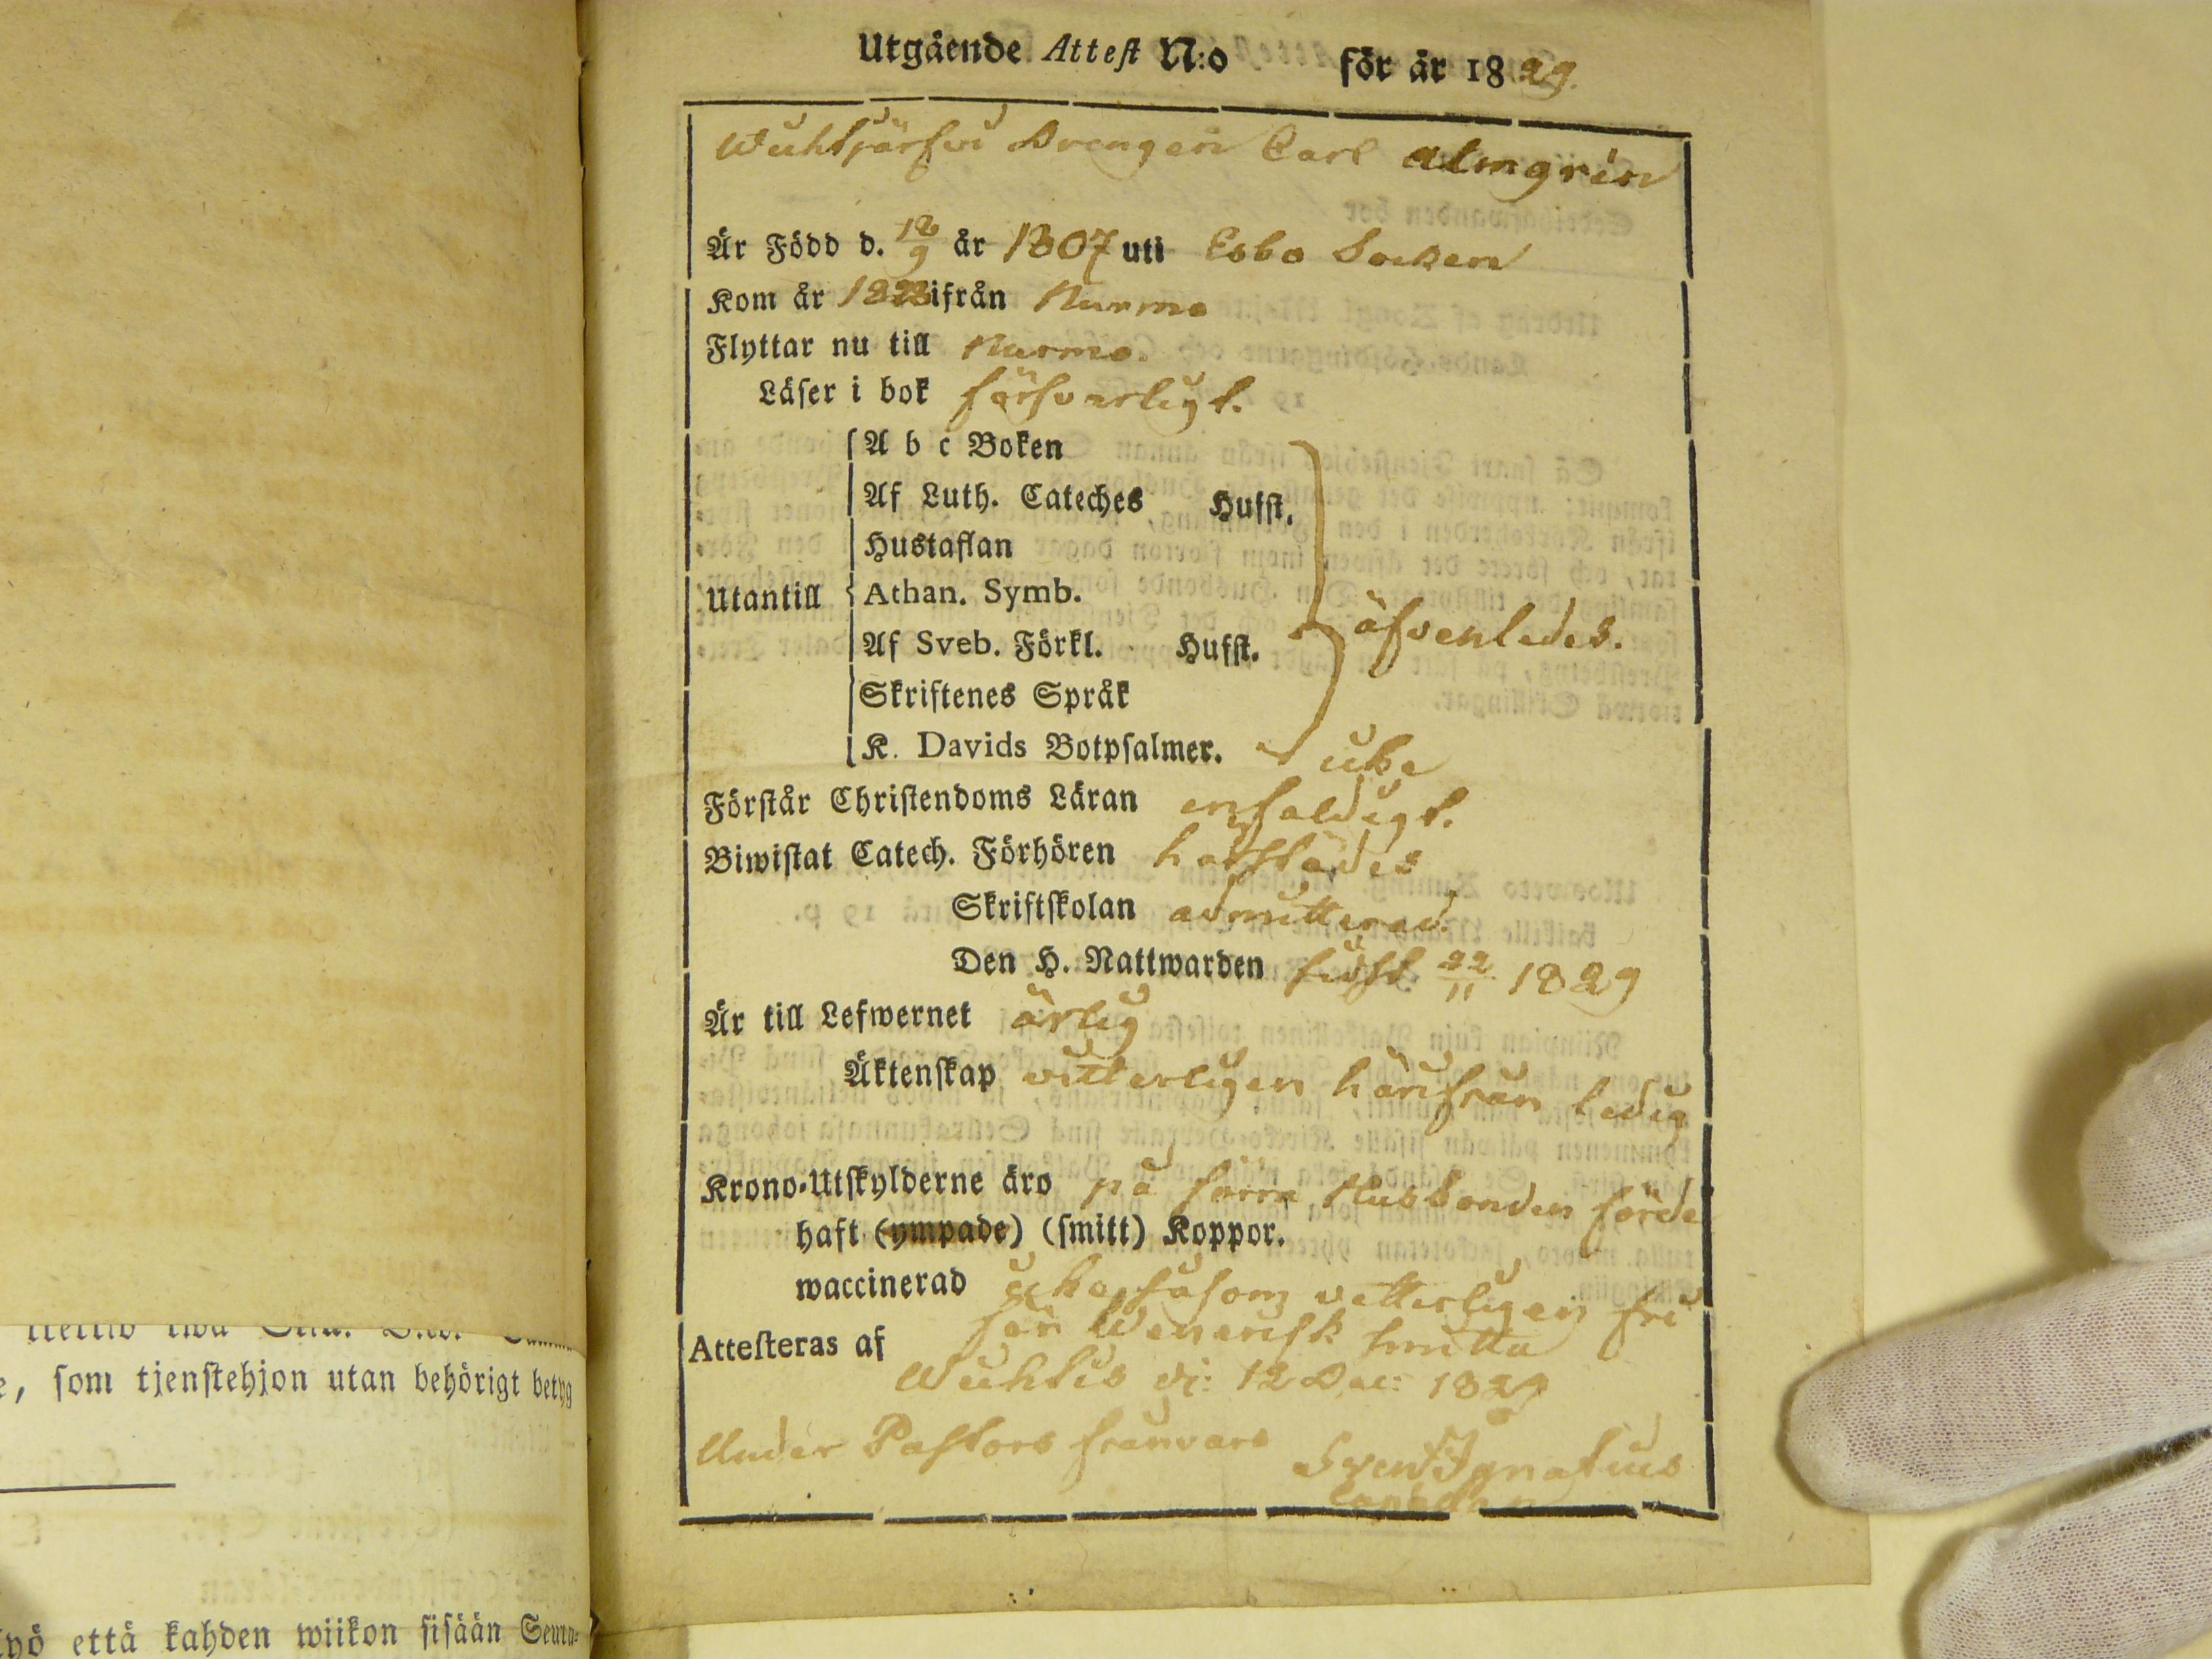 Utgående Attest N:o för år 1829.
Wuhtjärfvi Drengen Carl Almgrén
Är Född d. 18/9 år 1807 uti Esbo Socken
Kom år 1828 ifrån Nurmo
Flyttar nu till Nurmo.
Läser i bok försvarligt.
A b c Boken
Af Luth. Cateches Hufst.
Hustaflan
Utantill Athan. Symb.
Af Sveb. Förkl. Hufst. äfvenledes.
Skriftenes Språk
K. Davids Botpsalmer. icke
Förstår Christendoms Läran enfaldigt.
Biwistat Catech. Förhören härstädes
Skriftskolan admitterad.
Den H. Nattwarden sidst 22/11 1829
Är till Lefwernet ärlig
Äktenskap vitterligen härifrån ledig
Krono-Utskylderne äro på förra Husbonden förde
haft (ympade) (smitt) Koppor.
waccinerad icke, såsom vetterligen fri
från Wenerisk smitta
Attesteras af
Wuhtis d: 12 Dec: 1829
Under Pastors frånvaro Sven Ignatius
e, som tjenstehjon utan behörigt betyg
että kahden wiikon sisään Seura-